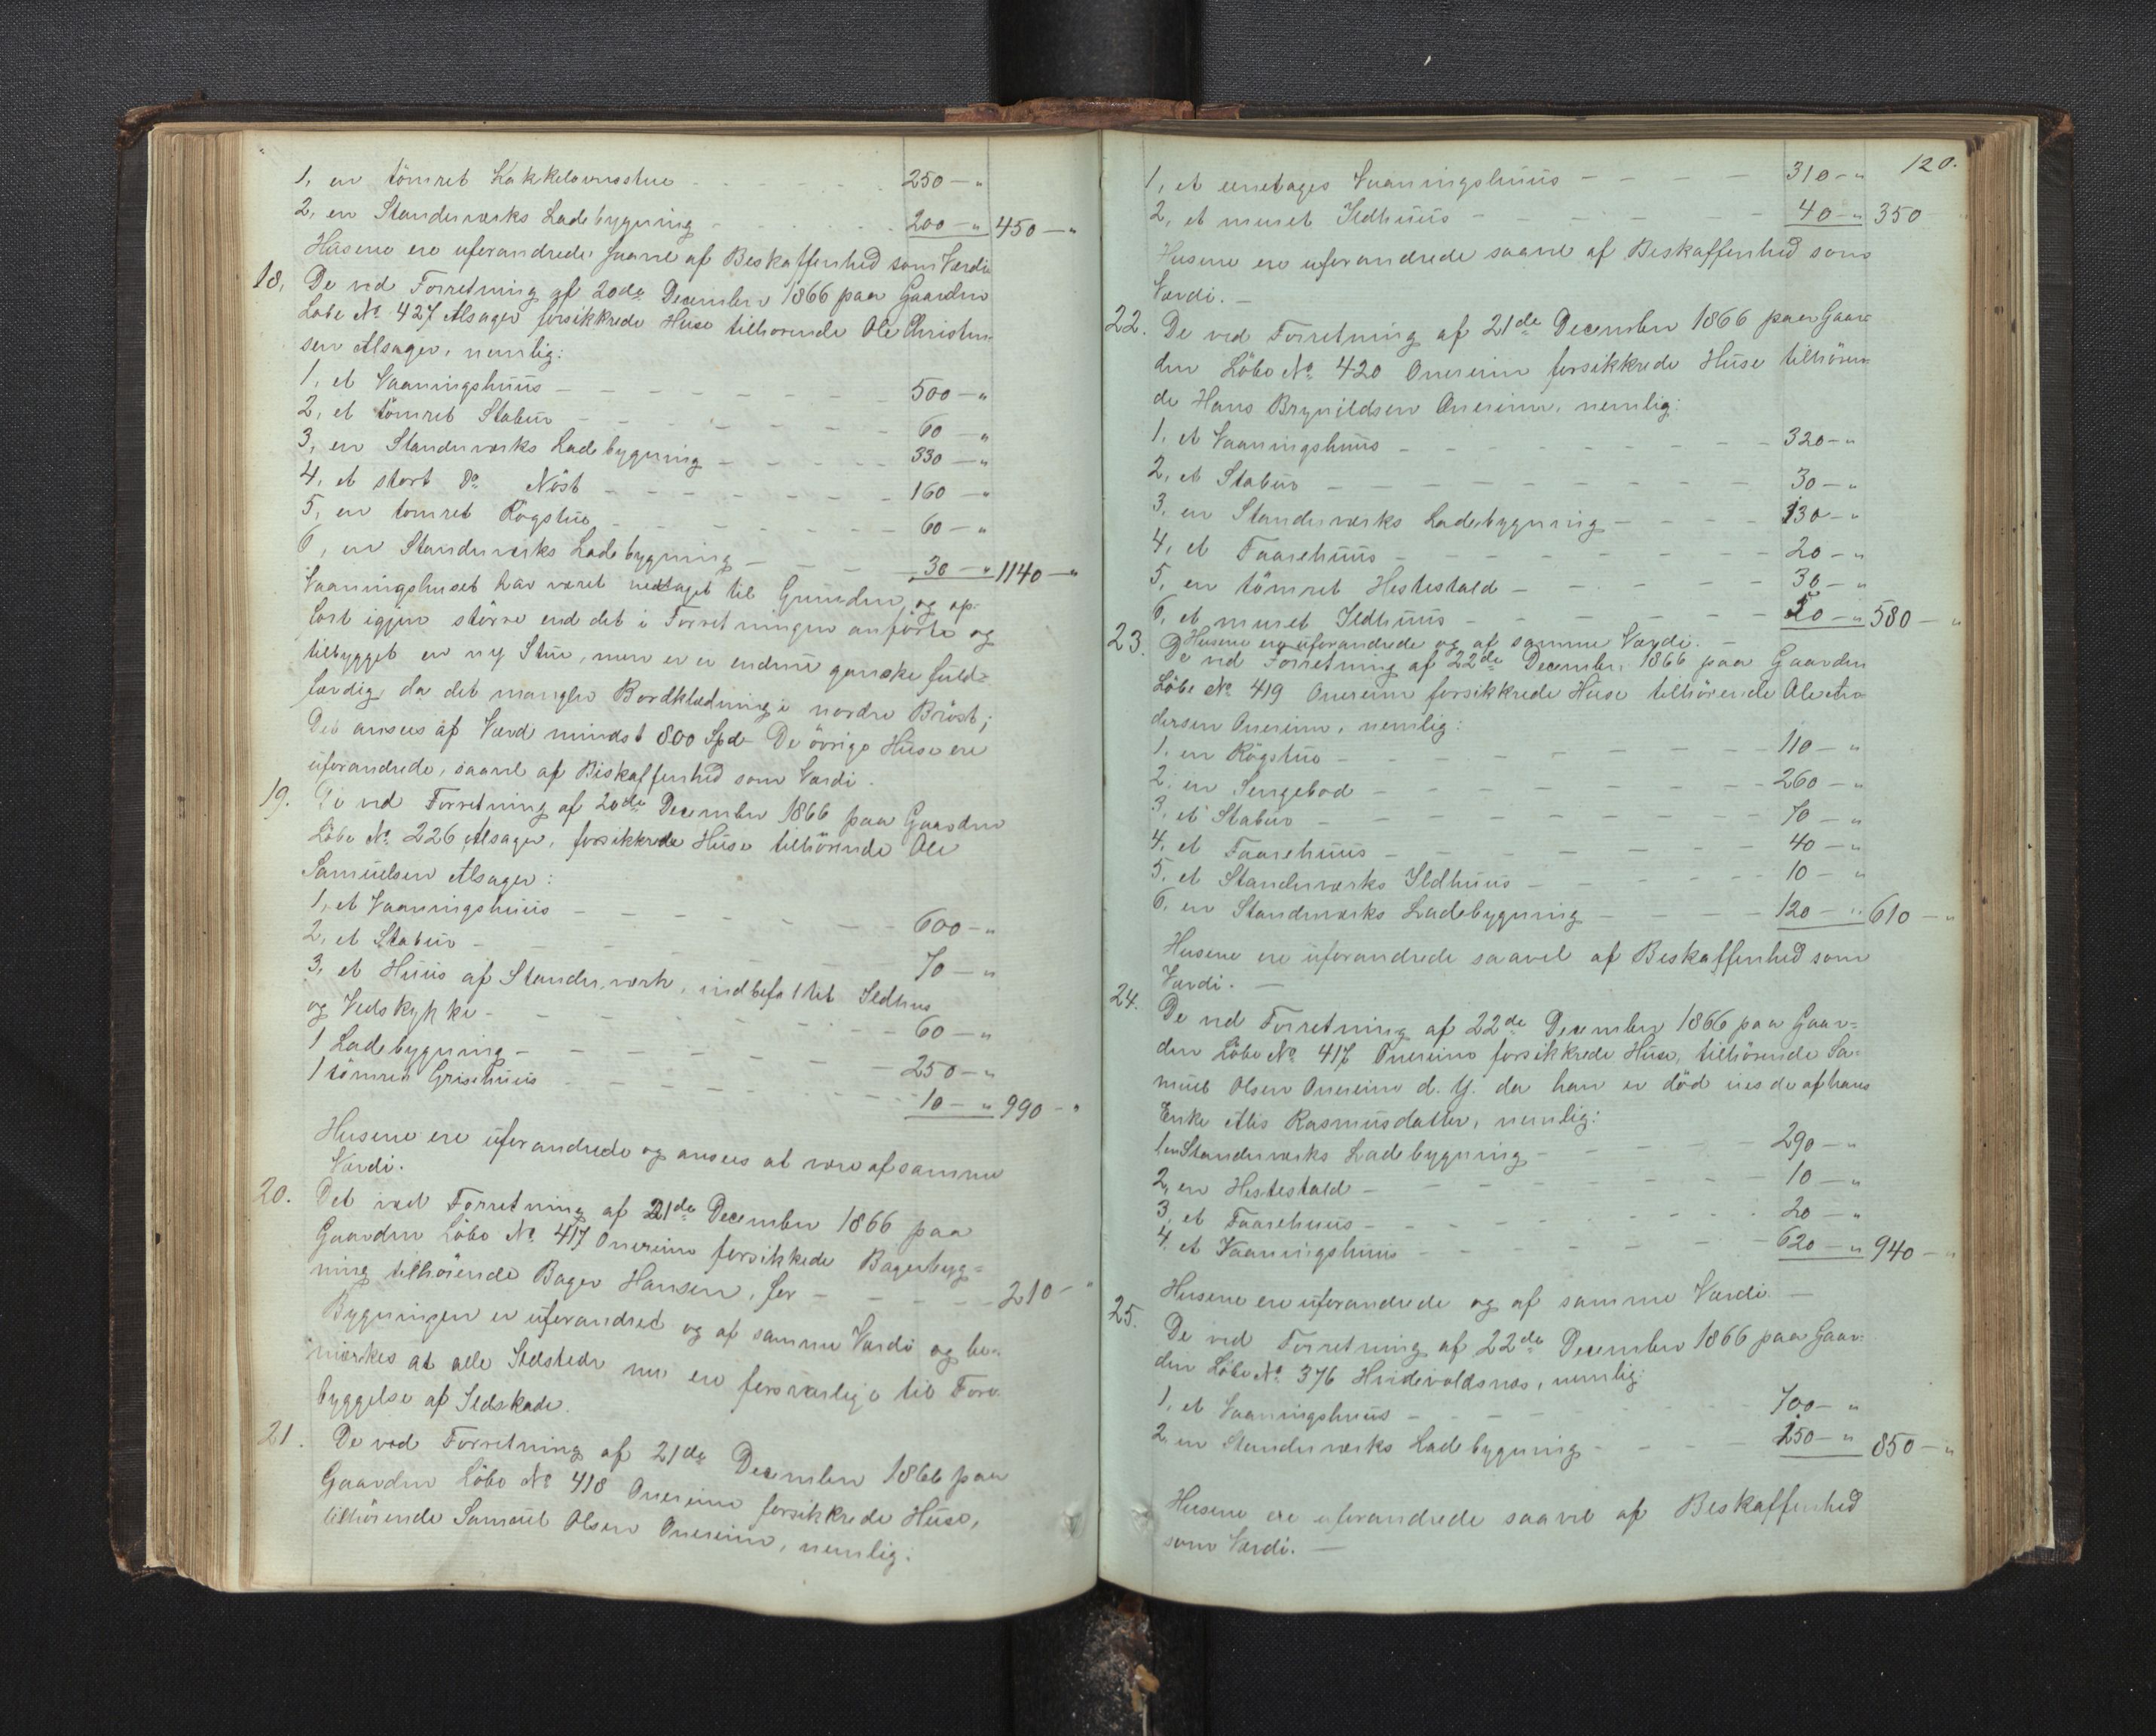 1, en tömret Kakkelovnsstue - - - - 250 - "
2, en Standerværks Ladebygning - - - - 200 - " 450 - "
Husene ere uforandrede saavel af Beskaffenhed som Værdi
18, De ved Forretning af 20de December 1866 paa Gaarden
Löbe No 427 Alsager forsikkrede Huse tilhörende Ole Christen-
sen Alsager, nemlig:
1, et Vaaningshuus - - - - 500 - "
2, et tömret Stabur - - - - 60 - "
3, en Standerværks Ladebygning - - - - 330 - "
4, et stort Do Nöst - - - - 160 - "
5, en tömret Rögstue - - - - 60 - "
6, en Standerværks Ladebygning - - - - 30 - " 1140 - "
Vaaningshuset har været nedtaget til Grunden og op-
fört igjen större end det i Forretningen anförte og
tilbygget en ny Stue, men er ei endnu ganske fuld-
færdig, da det mangler Bordklædning i nordre Bröst;
Det ansees af Værd mindst 800 Spd- De övrige Huse ere
uforandrede, saavel af Beskaffenhed som Værdi.
19. De ved Forretning af 20de December 1866 paa Gaarden
Löbe No 226 Alsager, forsikkrede Huse tilhörende Ole
Samuelsen Alsager:
1, et Vaaningshuus - - - - 600 - "
2, et Stabur - - - - 70 - "
3, et Huus af Standerværk, indbefattet Ildhus
og Vedskykke - - - - 60 - "
1 Ladebygning - - - - 250 - "
1 tömret Grisehuus - - - - 10 - " 990 - "
Husene ere uforandrede og ansees at være af samme
Værdi.
20. Det ved Forretning af 21de December 1866 paa
Gaarden Löbe No 417 Onereim forsikkede Bagerbyg-
ning tilhörende Bager Hansen, for - - - - 210 - "
Bygningen er uforandret og af samme Værdi og be-
mærkes at alle Ildsteder nu ere forsvarlige til Fore-
byggelse af Ildskade.
21. De ved Forretning af 21de December 1866 paa
Gaarden Löbe No 418 Onereim forsikkrede Huse,
tilhörende Samuel Olsen Onereim, nemlig:
120.
1, et eenetages Vaaningshuus - - - - 310 - "
2, et muret Ildhuus - - - - 40 - " 350
Husene ere uforandrede saavel af Beskaffenhed som
Værdi. -
22. De ved Forretning af 21de December 1866 paa Gaar-
den Löbe No 420 Onereim forsikkrede Huse tilhören-
de Hans Brynildsen Onereim, nemlig:
1, et Vaaningshuus - - - - 320 - "
2, et Stabur - - - - 30 - "
3, en Standerværks Ladebygning - - - - 130 - "
4, et Faarehuus - - - - 20 - "
5, en tömret Hestestald - - - - 30 - "
6, et muret Ildhuus - - - - 50 - " 580 - "
Husene ere uforandrede og af samme Værdi. -
23. De ved Forretning af 22de December 1866 paa Gaarden
Löbe No 419 Onereim forsikkrede Huse tilhörende Ole An-
dersen Onereim, nemlig:
1, en Rögstue - - - - 110 - "
2, en Sengebod - - - - 260 - "
3, et Stabur - - - - 70 - "
4, et Faarehuus - - - - 40 - "
5, et Standerværks Ildhuus - - - - 10 - "
6, en Standerværks Ladebygning - - - - 120 - " 610 - "
Husene ere uforandrede saavel af Beskaffenhed som
Værdi. -
24. De ved Forretning af 22de December 1866 paa Gaar-
den Löbe No 417 Onereim forsikkrede Huse, tilhörende Sa-
muel Olsen Onereim d. y. da han er död af hans
Enke Alis Rasmusdatter, nemlig:
1 en Standerværks Ladebygning - - - - 290 - "
2, en Hestestald - - - - 10 - "
3, et Faarehuus - - - - 20 - "
4, et Vaaningshuus - - - - 620 - " 940 - "
Husene ere uforandrede og af samme Værdi -
25. De ved Forretning af 22de December 1866 paa Gaar-
den Löbe No 376 Hvidevoldsnæs, nemlig:
1, et Vaaningshuus - - - - 700 - "
2, en Standerværks Ladebygning - - - - 150 - " 850 - "
Husene ere uforandrede saavel af Beskaffenhed
som Værdi. -